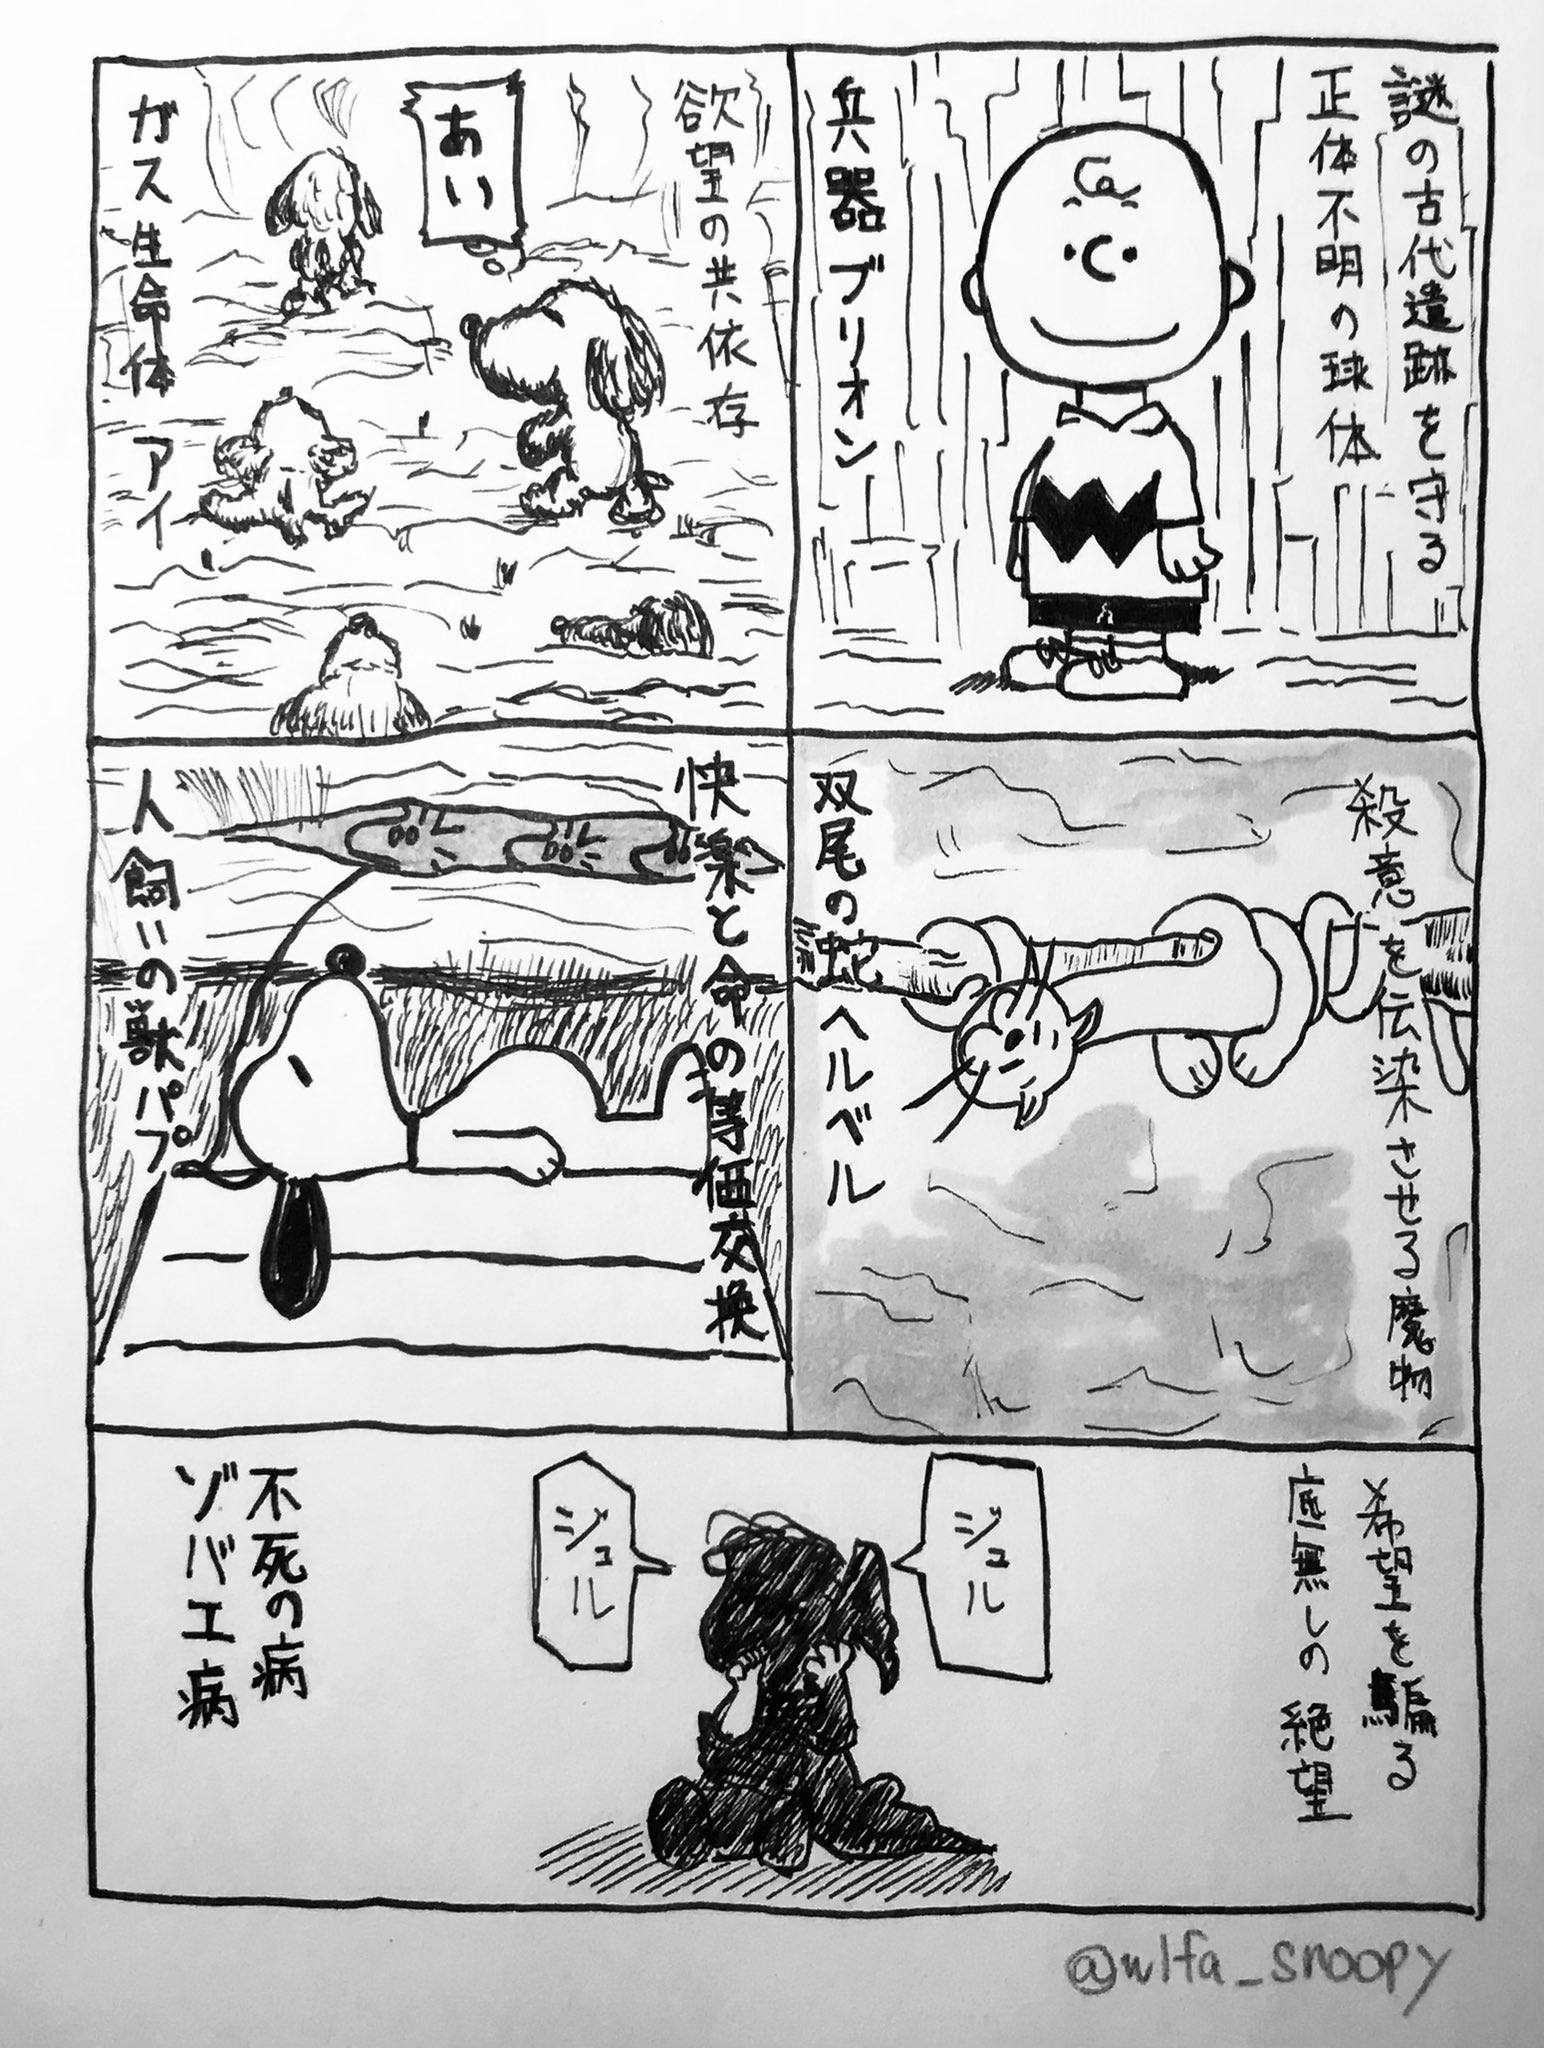 謎の古代遺跡を守る
正体不明の球体
兵器ブリオン
欲望の共依存
あい
ガス生命体 アイ
殺意を伝染させる魔物
双尾の蛇ヘルベル
快楽と命の等価交換
人飼いの獣パプ
希望を騙る
底無しの絶望
ジュル
ジュル
不死の病
ゾバエ病
@wlfa_snoopy